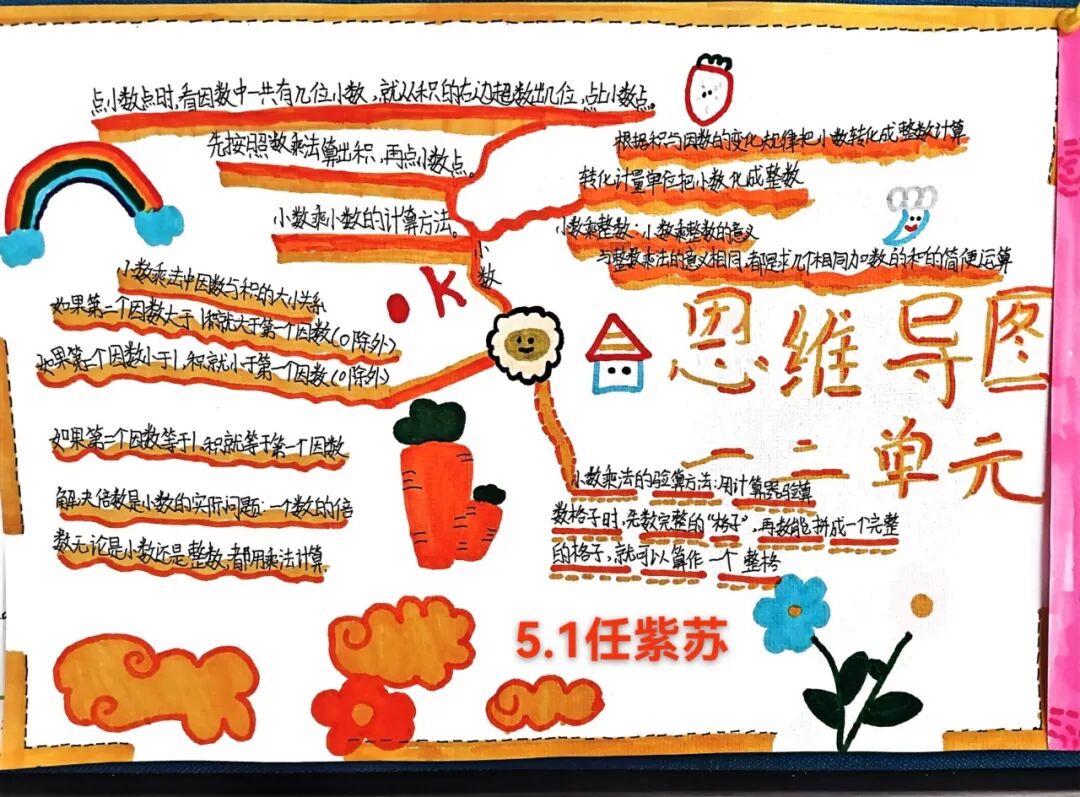 点小数点时,看因数中一共有几位小数,就从积的右边起数出几位,点上小数点。
先按照数乘法算出积,再点小数点。
小数乘小数的计算方法。
小数
根据积与因数的变化规律把小数转化成整数计算
转化计量单位把小数化成整数
小数乘整数:小数乘整数的意义
与整数乘法的意义相同,都是求几个相同加数的和的简便运算
小数乘法中因数与积的大小关系
如果第二个因数大于1,积就大于第一个因数(0除外)
如果第二个因数小于1,积就小于第一个因数(0除外)
如果第二个因数等于1,积就等于第一个因数
解决倍数是小数的实际问题:一个数的倍
数无论是小数还是整数,都用乘法计算.
K
思维导图
一二单元
小数乘法的验算方法:用计算器验算
数格子时,先数完整的“格子”,再数能拼成一个完整
的格子,就可以算作一个整格
5.1任紫苏